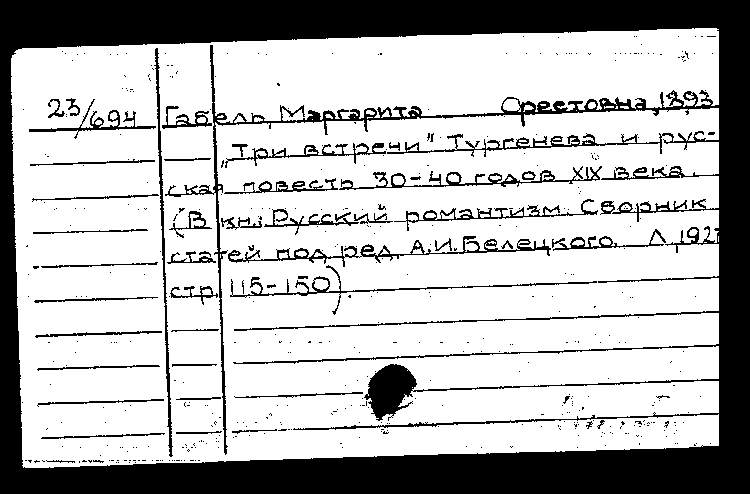 23/694 Габель, Маргарита Орестовна, 1893
„Три встречи" Тургенева и рус-
ская повесть 30-40 годов XIX века.
(В кн.: Русский романтизм. Сборник
статей под ред. А.И. Белецкого. Л, 1927
стр. 115-150).